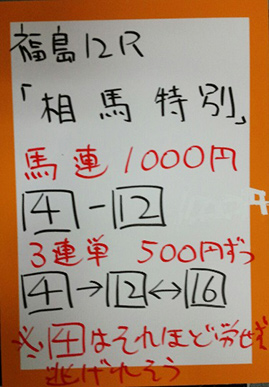 福島12R
「相馬特別」
馬連1000円
4-12
3連単 500円ずつ
4→12↔16
※4はそれほど労せず
逃げれそう